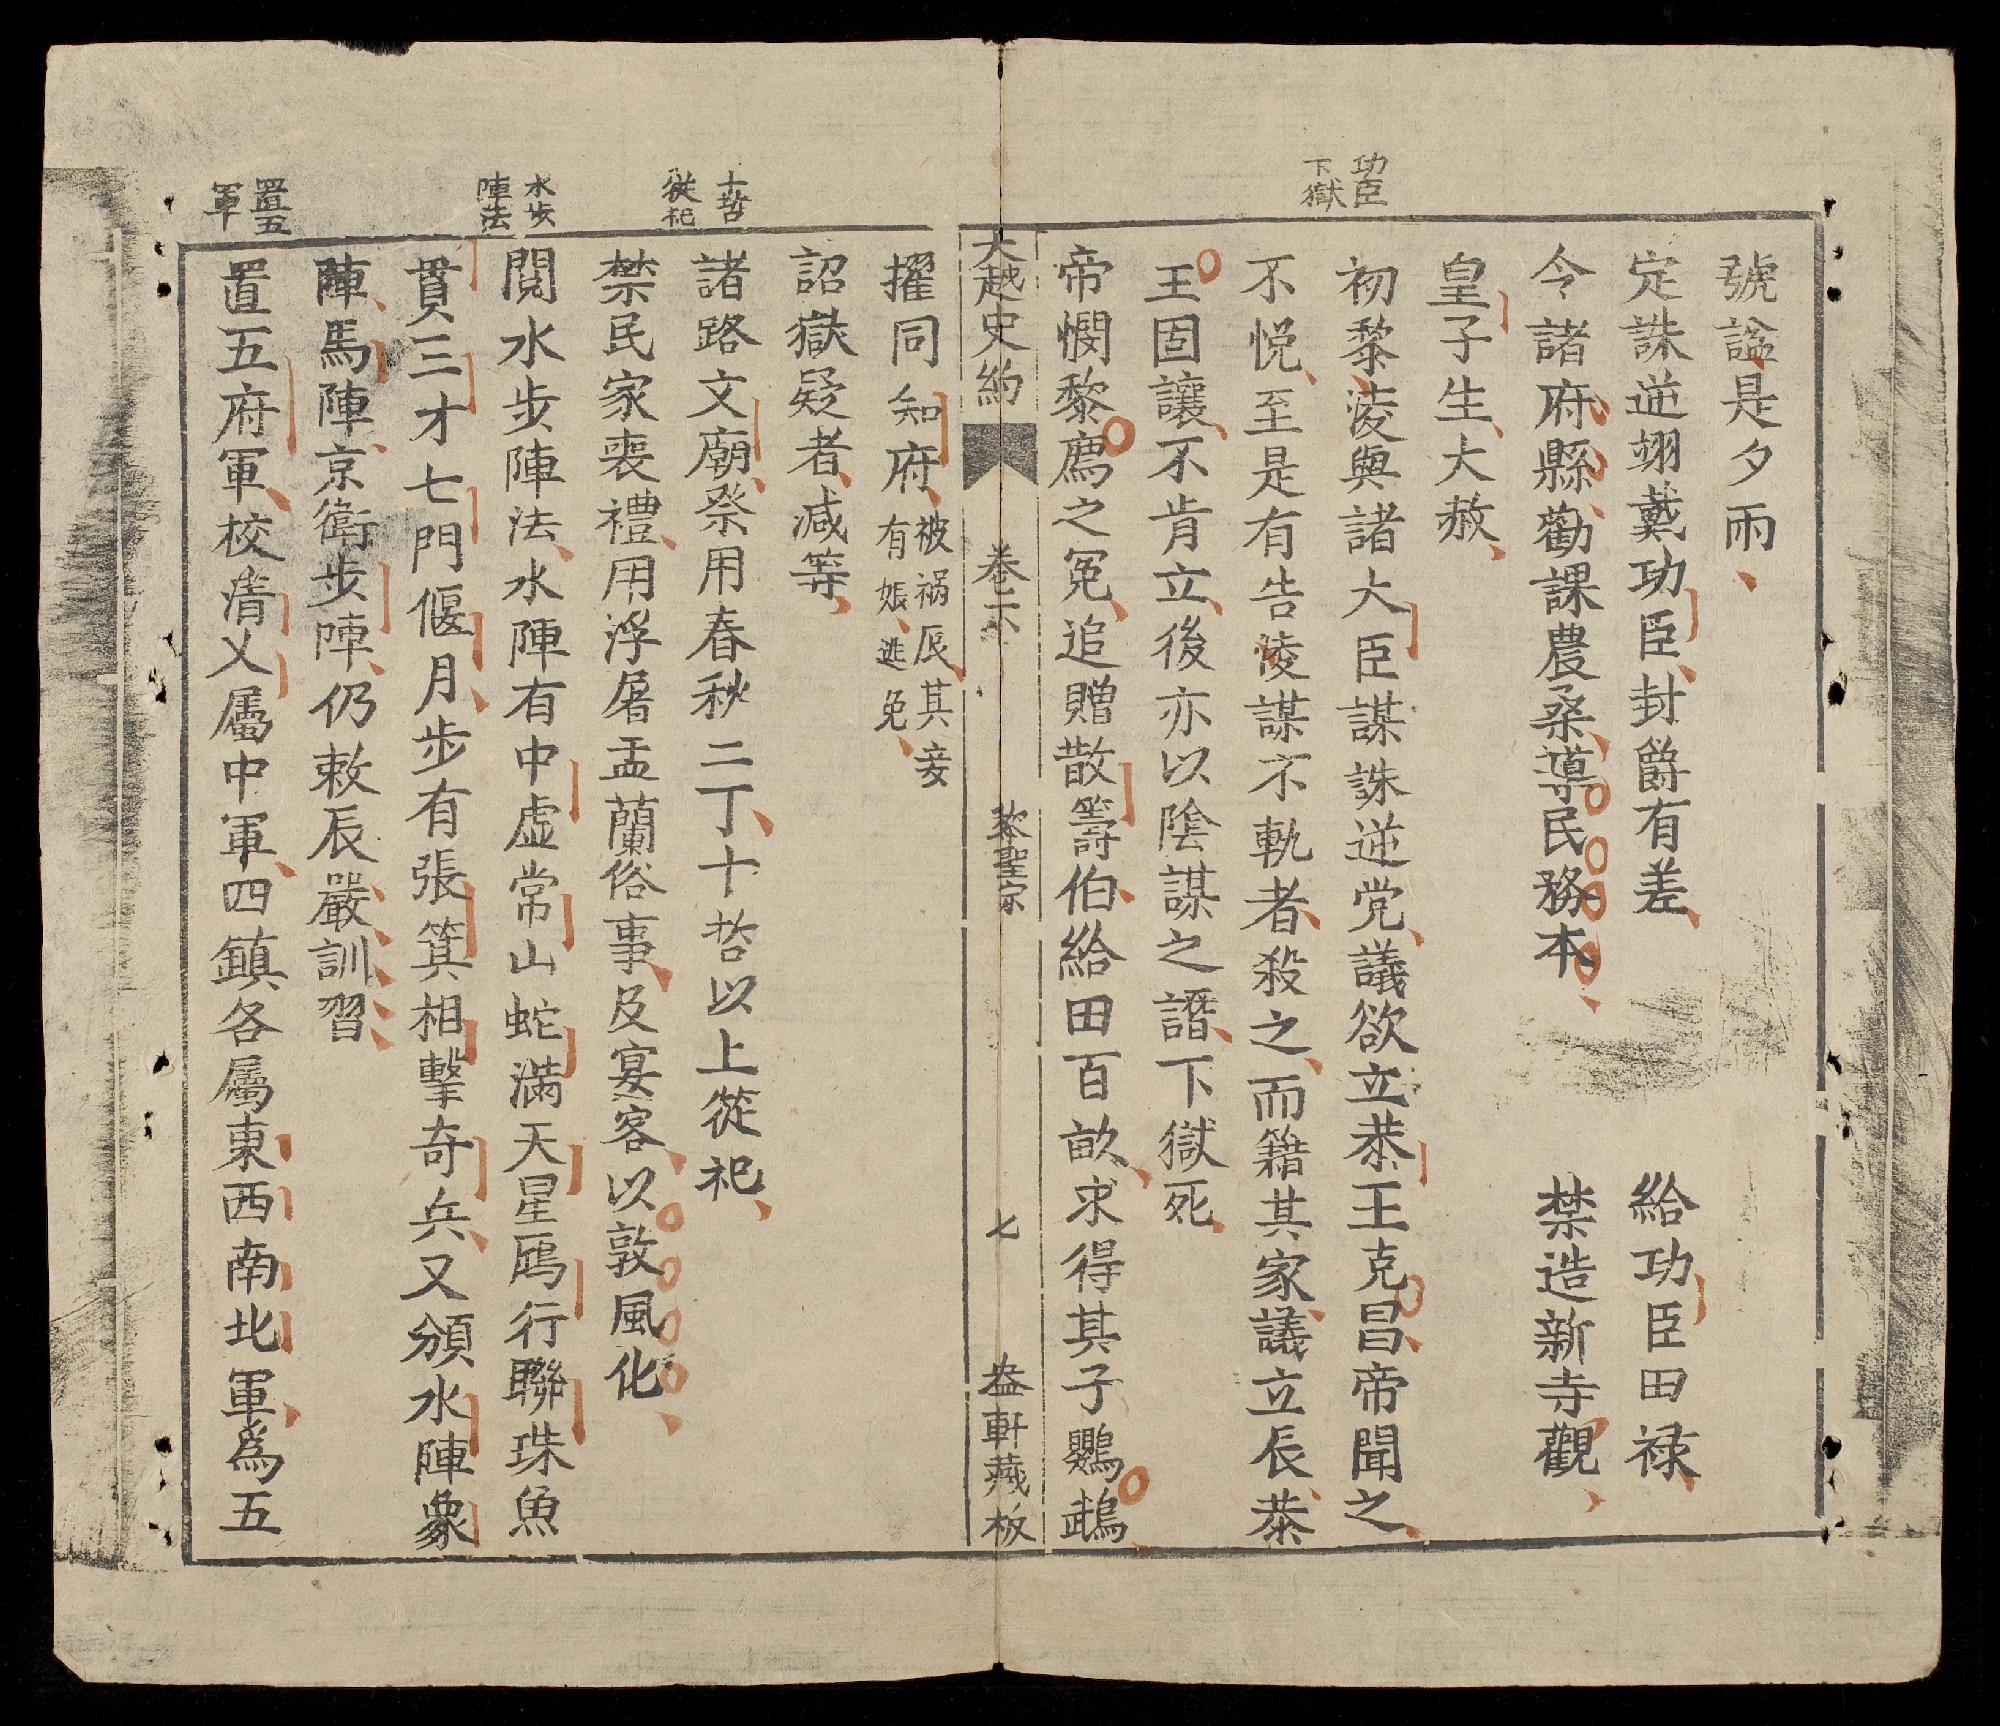 功臣
下獄
號謚是夕雨
定誅逆翊戴功臣封爵有差　給功臣田禄
令諸府縣勸課農桑導民務本　禁造新寺觀
皇子生大赦
初黎淩與諸大臣謀誅逆党議欲立恭王克昌帝聞之
不悅至是有告淩謀不軌者殺之而籍其家議立辰恭
王固讓不肯立後亦以陰謀之譖下獄死
帝憫黎廌之冤追贈散籌伯給田百畝求得其子鸚䳇
大越史約　卷二　黎聖宗　七　盎軒藏板
十哲
從祀
水步
陣法
置五
軍
擢同知府被禍辰其妾
有娠逃免
詔獄疑者减等
諸路文廟祭用春秋二丁十哲以上從祀
禁民家喪禮用浮屠盂蘭俗事及宴客以敦風化
閱水步陣法水陣有中虛常山蛇满天星鴈行聯珠魚
貫三才七門偃月步有張箕相擊奇兵又頒水陣象
陣馬陣京衛步陣仍敕辰嚴訓習
置五府軍校清乂屬中軍四鎮各屬東西南北軍爲五